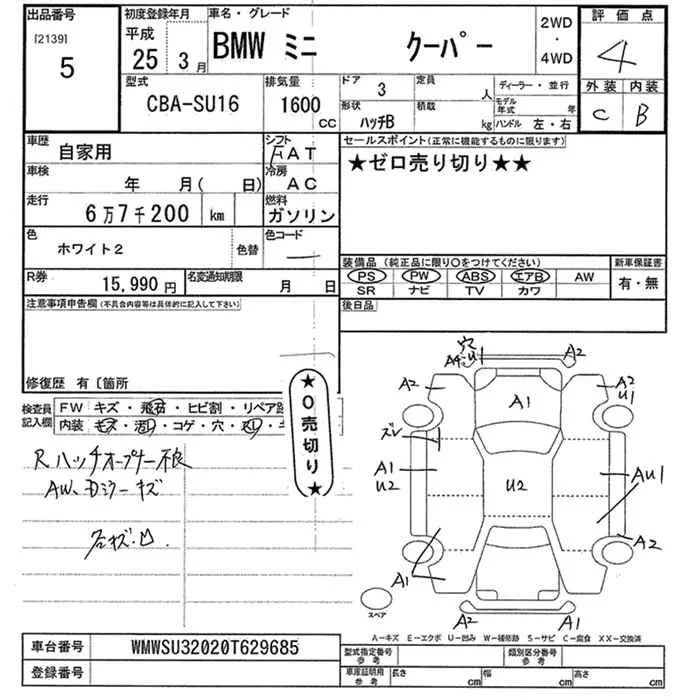 出品番号 初度登録年月 車名・グレード 2WD・4WD 評価点
[2139] 5 平成 25 3月 BMW ミニ クーパー 4
型式 排気量 ドア 3 定員 人 ディーラー・並行 外装 内装
CBA-SU16 1600 CC 形状 ハッチB 積載 kg モデル年式 年 ハンドル 左・右 C B
車歴 自家用 シフト FAT セールスポイント(正常に機能するものに限ります)
車検 年 月( 日) 冷房 AC ★ゼロ売り切り★★
走行 6万7千200 km 燃料 ガソリン
色 ホワイト2 色替 色コード
装備品(純正品に限り○をつけてください) 新車保証書
R券 15,990円 名変通知期限 月 日 PS PW ABS エアB AW 有・無
SR ナビ TV カワ
注意事項申告欄(不具合内容等は具体的に記入して下さい) 後日品
修復歴 有〔箇所
検査員記入欄 FW キズ・飛石・ヒビ割・リペア
内装 コゲ・穴
★0売切り★
R ハッチオープナー不良
AW、Dミラーキズ
穴
A4 U A2
A2 A1 A2 U1
ズレ
A1 U2 U2 AU1
A2
A1
A2 A1
スペア
A−キズ E−エクボ U−凹み W−補修跡 S−サビ C−腐食 XX−交換済
車台番号 WMWSU32020T629685 型式指定番号 参考 類別区分番号 参考
登録番号 車庫証明用 参考 長さ cm 幅 cm 高さ cm